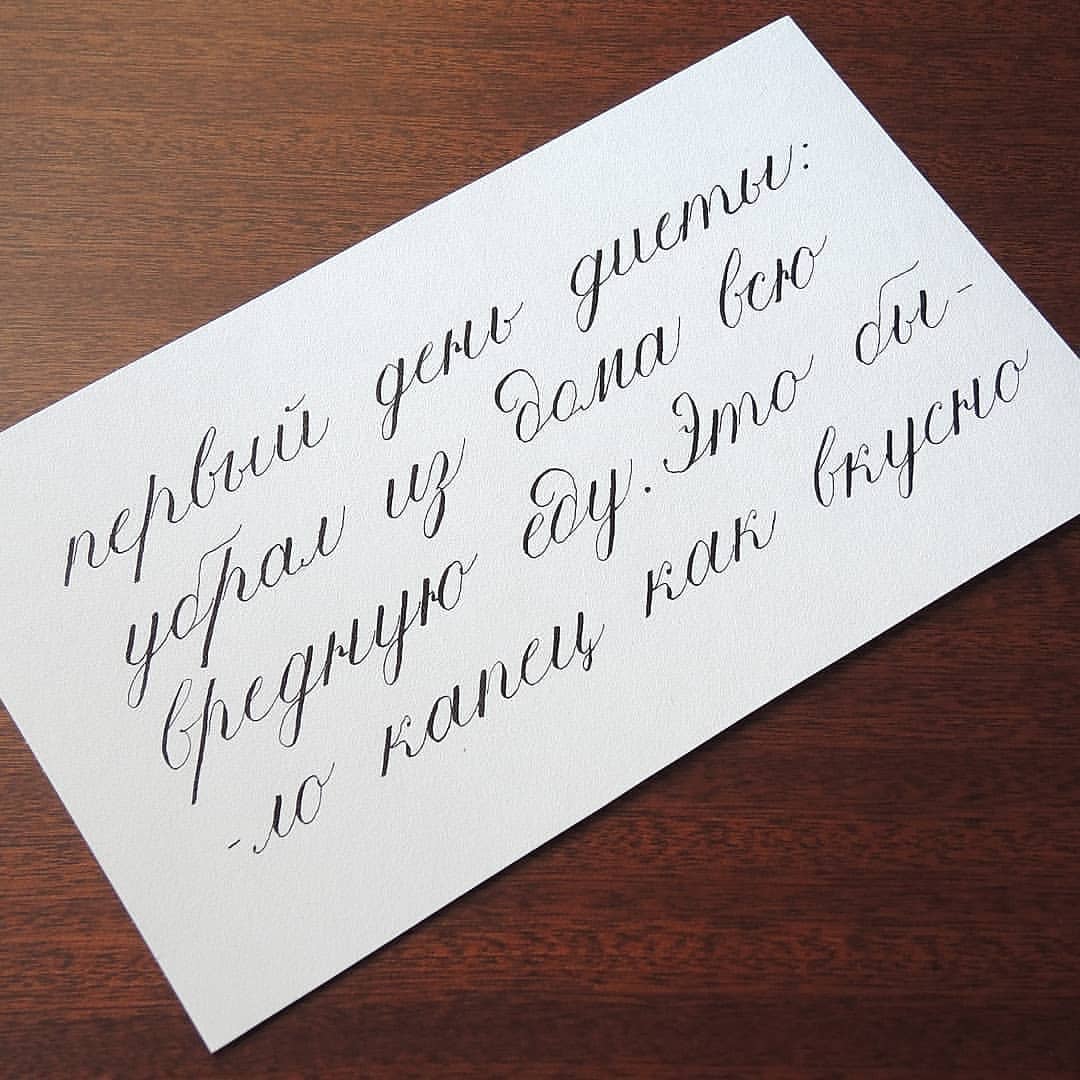 первый день диеты:
убрал из дома всю
вредную еду. Это бы-
-ло капец как вкусно